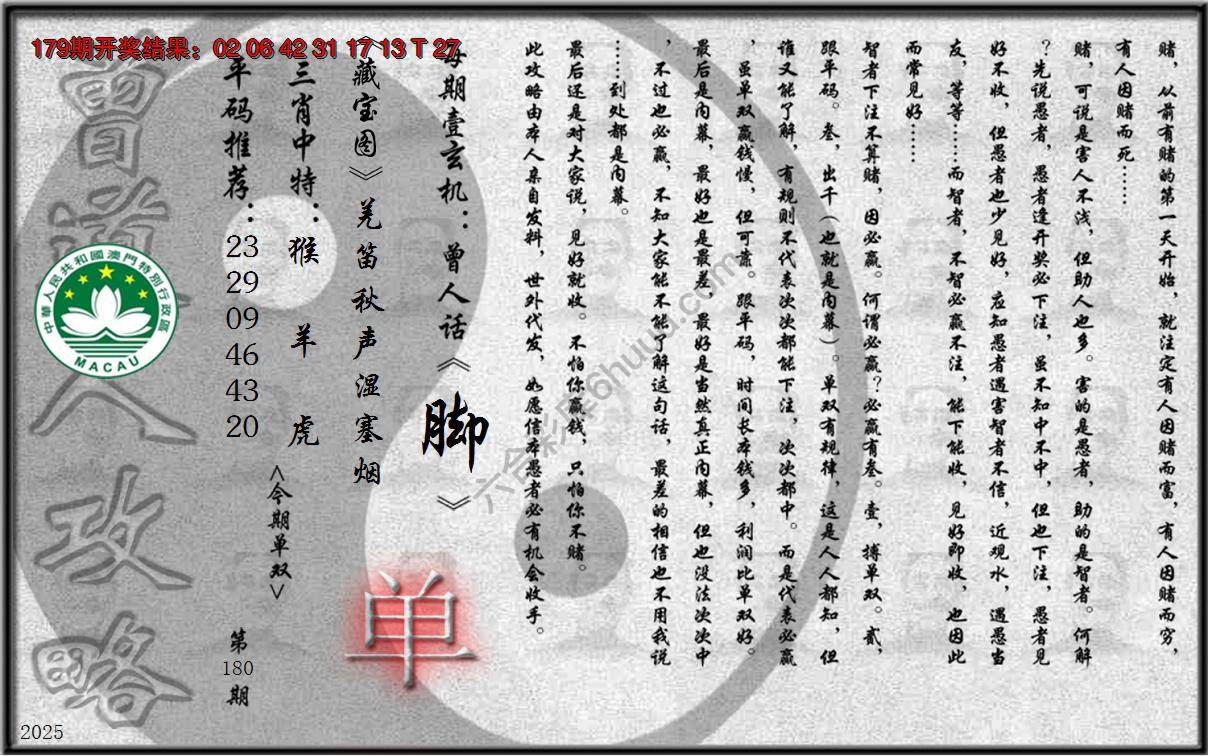 179期开奖结果：02 06 42 31 17 13 T 27
赌，从前有赌的第一天开始，就注定有人因赌而富，有人因赌而穷，
有人因赌而死……
赌，可说是害人不浅，但助人也多。害的是愚者，助的是智者。何解
？先说愚者，愚者逢开奖必下注，虽不知中不中，但也下注，愚者见
好不收，但愚者也少见好，应知愚者遇害智者不信，近观水，遇愚当
友，等等……而智者，不智必赢不注，能下能收，见好即收，也因此
而常见好……
智者下注不算赌，因必赢。何谓必赢？必赢有叁。壹，搏单双。贰，
跟平码。叁，出千（也就是内幕）。单双有规律，这是人人都知，但
谁又能了解，有规则不代表次次都能下注，次次都中。而是代表必赢
，虽单双赢钱慢，但可靠。跟平码，时间长本钱多，利润比单双好。
最后是内幕，最好也是最差，最好是当然真正内幕，但也没法次次中
，不过也必赢，不知大家能不能了解这句话，最差的相信也不用我说
……到处都是内幕。
最后还是对大家说，见好就收。不怕你赢钱，只怕你不赌。
此攻略由本人亲自发料，世外代发，如愿信本愚者必有机会收手。
每期壹玄机：曾人话《脚》
《藏宝图》羌笛秋声湿塞烟
三肖中特：猴 羊 虎
平码推荐：23 29 09 46 43 20
<今期单双>
单
第180期
曾道人攻略
中華人民共和國澳門特別行政區
MACAU
六合彩库6huuu.com
2025